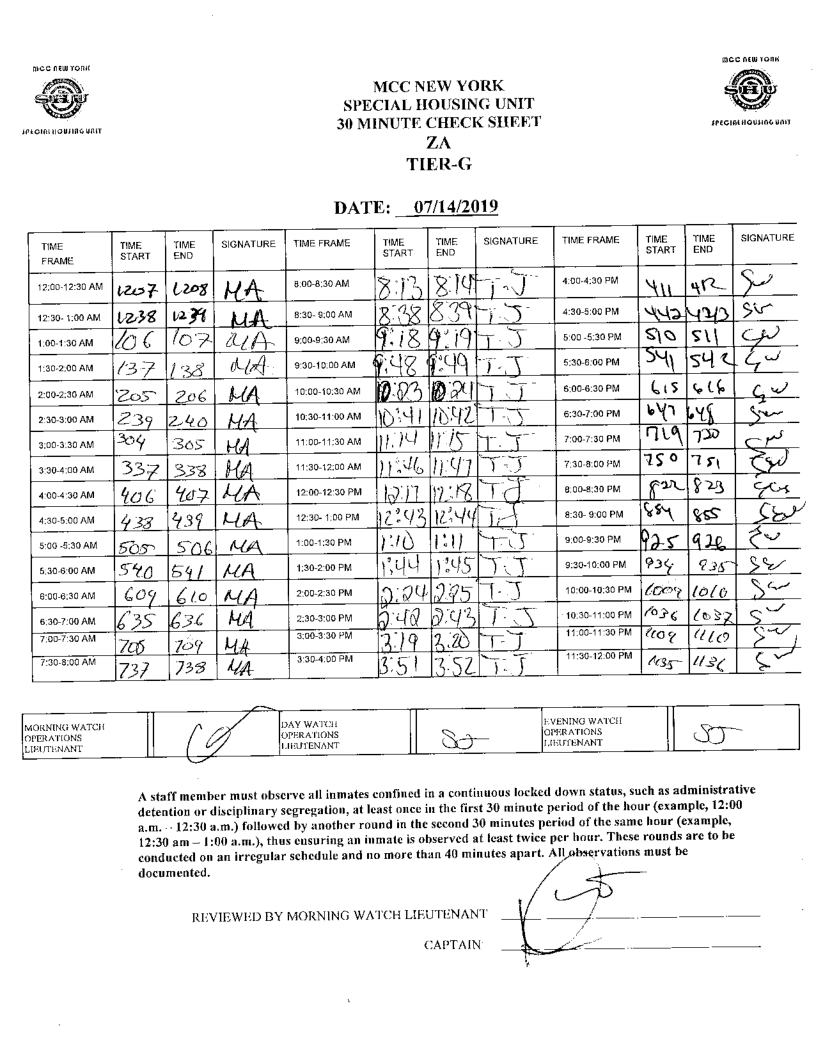 MCC NEW YORK
SHU
SPECIAL HOUSING UNIT
MCC NEW YORK
SHU
SPECIAL HOUSING UNIT
MCC NEW YORK
SPECIAL HOUSING UNIT
30 MINUTE CHECK SHEET
ZA
TIER-G
DATE: 07/14/2019
TIME FRAME TIME START TIME END SIGNATURE TIME FRAME TIME START TIME END SIGNATURE TIME FRAME TIME START TIME END SIGNATURE
12:00-12:30 AM 1207 1208 MA 8:00-8:30 AM 8:13 8:14 T.J 4:00-4:30 PM 411 412
12:30- 1:00 AM 1238 1239 MA 8:30- 9:00 AM 8:38 8:39 T.J 4:30-5:00 PM 442 443
1:00-1:30 AM 106 107 MA 9:00-9:30 AM 9:18 9:19 T.J 5:00 -5:30 PM 510 511
1:30-2:00 AM 137 138 MA 9:30-10:00 AM 9:48 9:49 T.J 5:30-6:00 PM 541 542
2:00-2:30 AM 205 206 MA 10:00-10:30 AM 10:23 10:24 T.J 6:00-6:30 PM 615 616
2:30-3:00 AM 239 240 MA 10:30-11:00 AM 10:41 10:42 T.J 6:30-7:00 PM 647 648
3:00-3:30 AM 304 305 MA 11:00-11:30 AM 11:14 11:15 T.J 7:00-7:30 PM 719 720
3:30-4:00 AM 337 338 MA 11:30-12:00 AM 11:46 11:47 T.J 7:30-8:00 PM 750 751
4:00-4:30 AM 406 407 MA 12:00-12:30 PM 12:17 12:18 T.J 8:00-8:30 PM 822 823
4:30-5:00 AM 438 439 MA 12:30- 1:00 PM 12:43 12:44 T.J 8:30- 9:00 PM 854 855
5:00 -5:30 AM 505 506 MA 1:00-1:30 PM 1:10 1:11 T.J 9:00-9:30 PM 925 926
5:30-6:00 AM 540 541 MA 1:30-2:00 PM 1:44 1:45 T.J 9:30-10:00 PM 934 935
6:00-6:30 AM 609 610 MA 2:00-2:30 PM 2:24 2:25 T.J 10:00-10:30 PM 1009 1010
6:30-7:00 AM 635 636 MA 2:30-3:00 PM 2:42 2:43 T.J 10:30-11:00 PM 1036 1037
7:00-7:30 AM 709 MA 3:00-3:30 PM 3:19 3:20 T.J 11:00-11:30 PM 1109 1110
7:30-8:00 AM 737 738 MA 3:30-4:00 PM 3:51 3:52 T.J 11:30-12:00 PM 1135 1136
MORNING WATCH OPERATIONS LIEUTENANT
DAY WATCH OPERATIONS LIEUTENANT
EVENING WATCH OPERATIONS LIEUTENANT
A staff member must observe all inmates confined in a continuous locked down status, such as administrative
detention or disciplinary segregation, at least once in the first 30 minute period of the hour (example, 12:00
a.m. - 12:30 a.m.) followed by another round in the second 30 minutes period of the same hour (example,
12:30 am – 1:00 a.m.), thus ensuring an inmate is observed at least twice per hour. These rounds are to be
conducted on an irregular schedule and no more than 40 minutes apart. All observations must be
documented.
REVIEWED BY MORNING WATCH LIEUTENANT
CAPTAIN